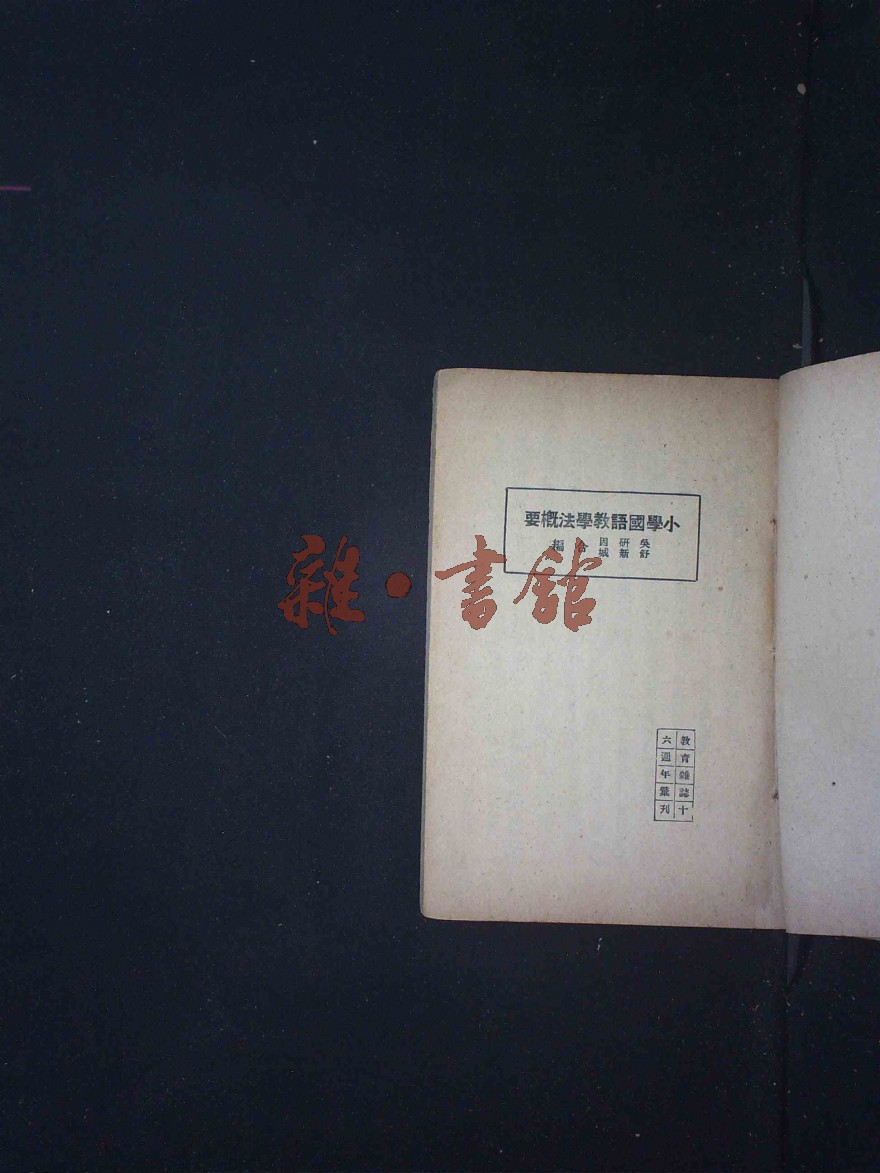 小學國語教學法概要
吳研因
舒新城
合編
教育雜誌十
六週年彙刊
雜·書館